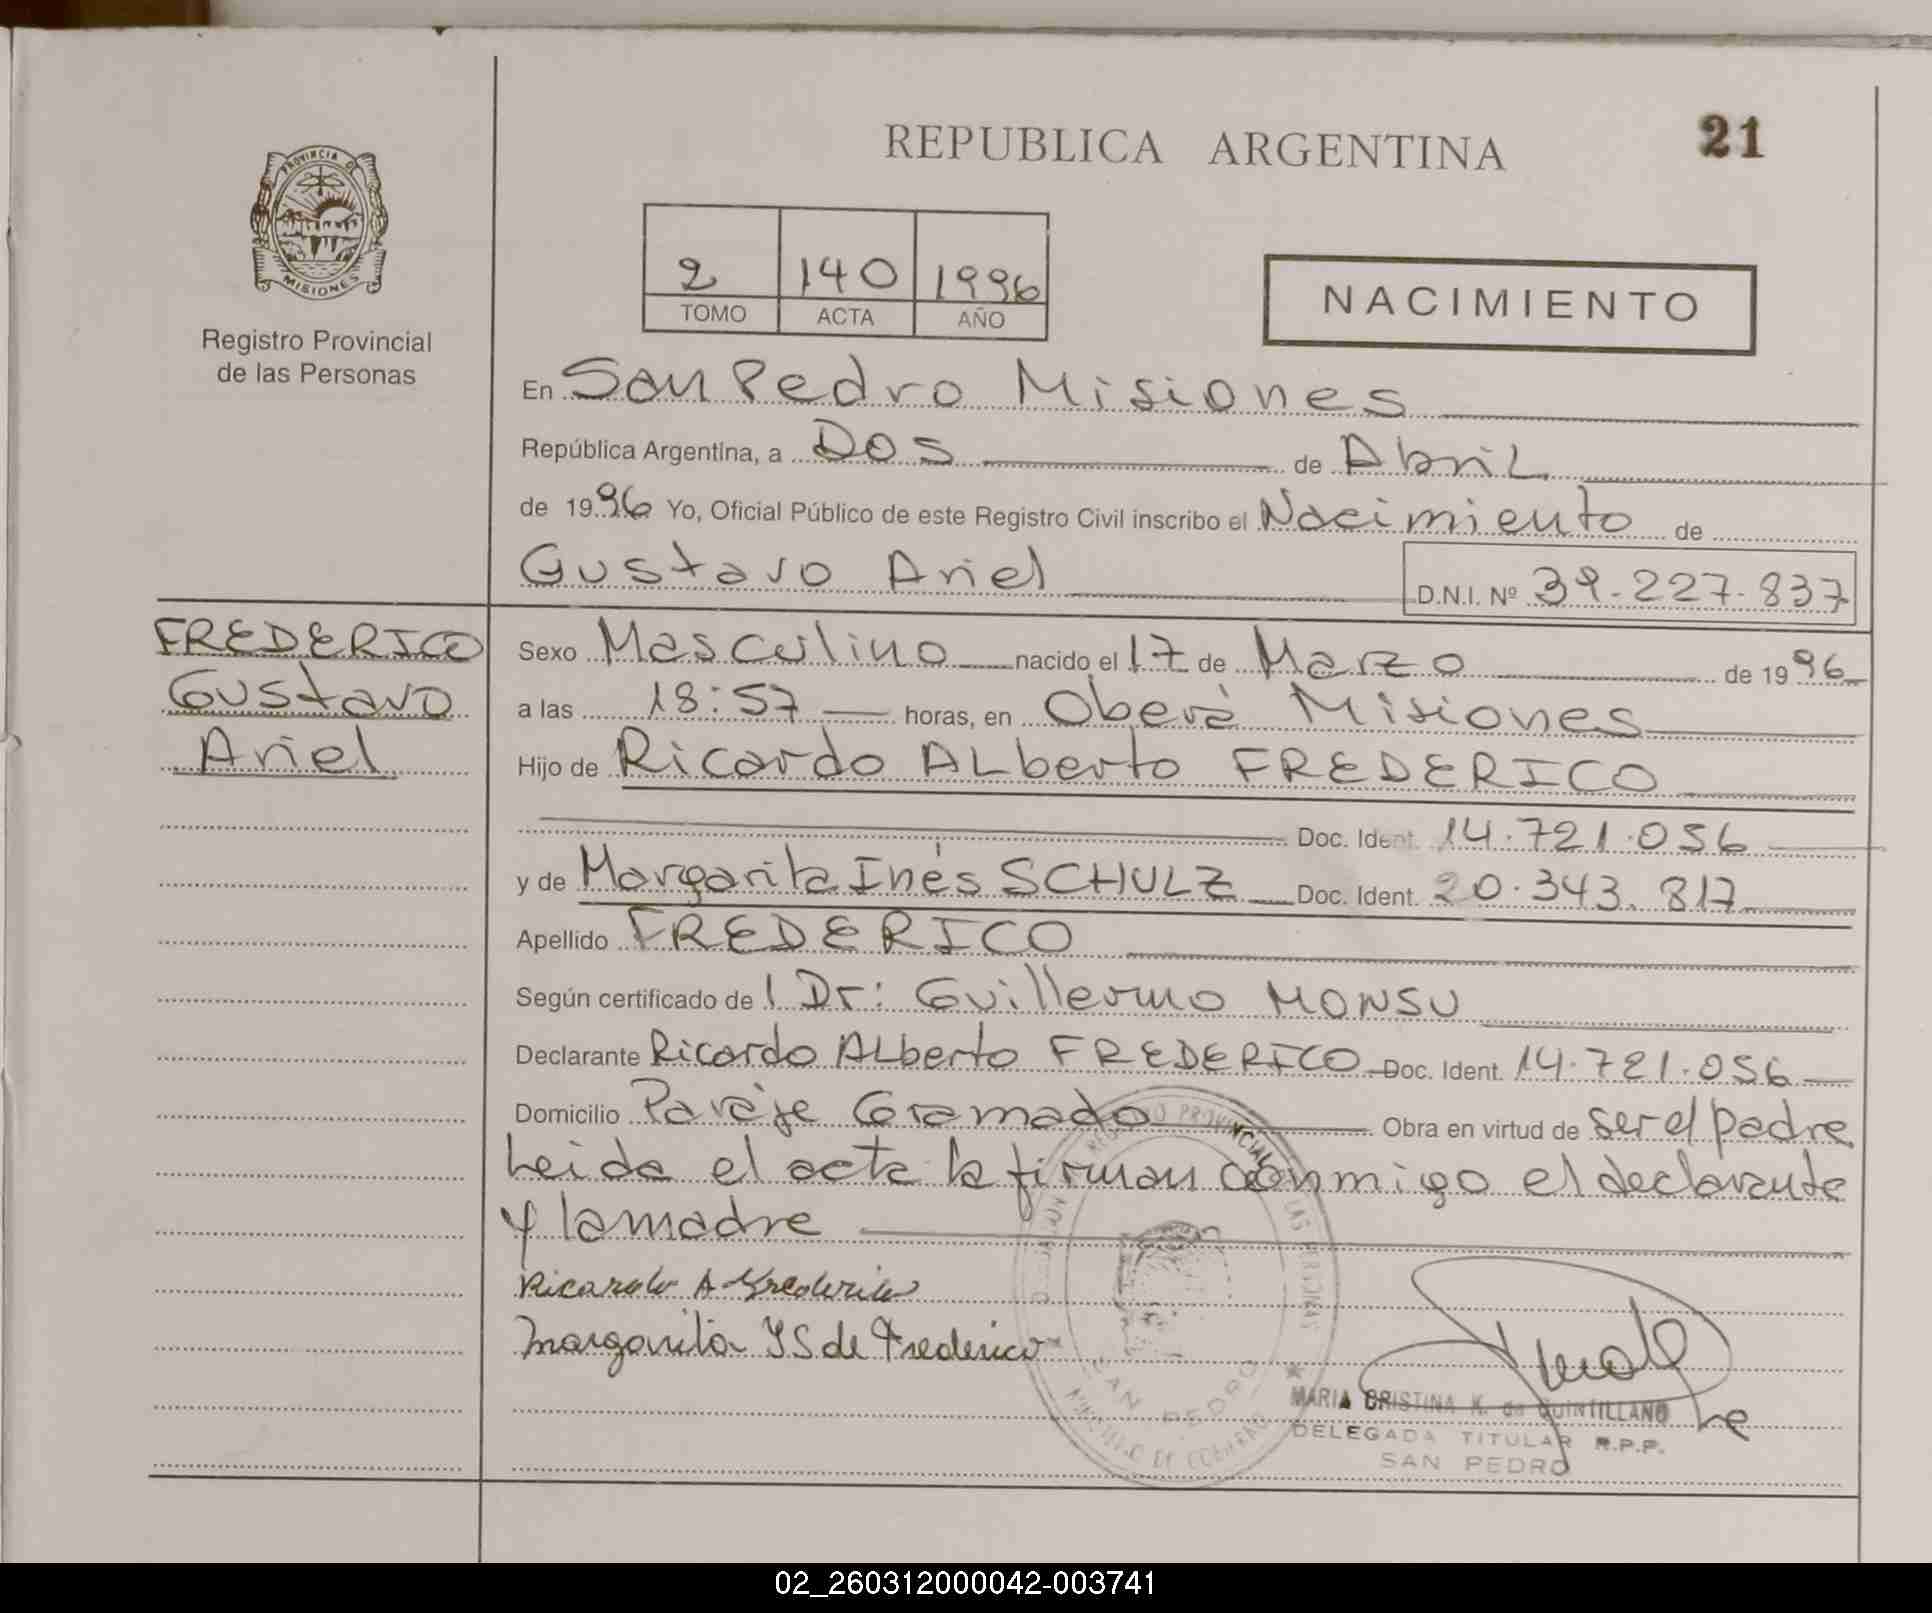 REPUBLICA ARGENTINA
21
PROVINCIA DE
MISIONES
Registro Provincial
de las Personas
2 140 1996
TOMO ACTA AÑO
NACIMIENTO
En San Pedro Misiones
República Argentina, a Dos de Abril
de 1996 Yo, Oficial Público de este Registro Civil inscribo el Nacimiento de
Gustavo Ariel D.N.I. Nº 39.227.837
FREDERICO
Gustavo
Ariel
Sexo Masculino nacido el 17 de Marzo de 1996
a las 18:57 horas, en Oberá Misiones
Hijo de Ricardo ALberto FREDERICO
Doc. Ident. 14.721.056
y de Margarita Inés SCHULZ Doc. Ident. 20.343.817
Apellido FREDERICO
Según certificado de l Dr: Guillermo MONSU
Declarante Ricardo ALberto FREDERICO Doc. Ident. 14.721.056
Domicilio Paraje Gramado Obra en virtud de ser el padre
Leida el acta la firman conmigo el declarante
y la madre
Ricardo A Frederico
Margarita IS de Frederico
SAN PEDRO
MARIA CRISTINA K. de QUINTILLANO
DELEGADA TITULAR R.P.P.
SAN PEDRO
02_260312000042-003741